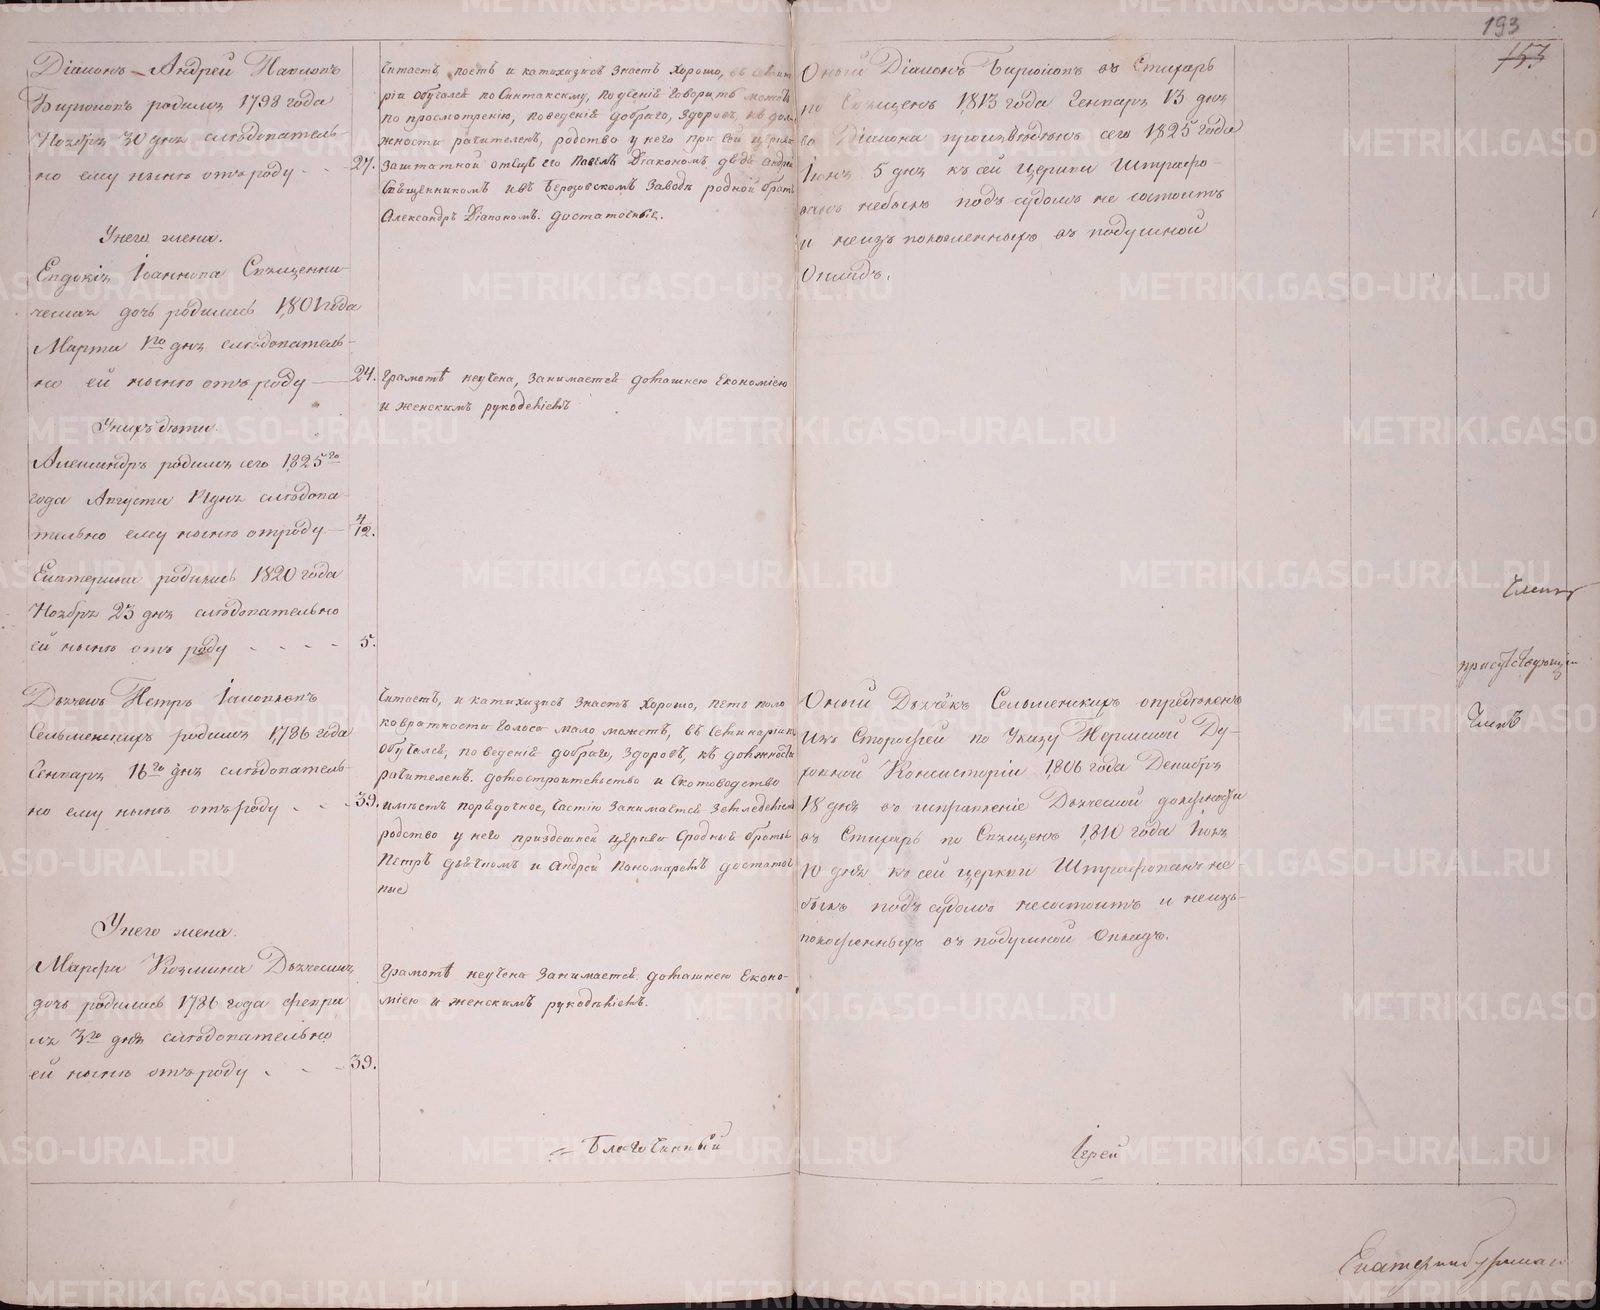 193
153
Діаконъ Андрей Павловъ
Бирюковъ родился 1798 года
Ноября 30 дня слѣдователь-
но ему нынѣ отъ роду - - 27.
У него жена.
Евдокія Іоаннова Священни-
ческая дочь родилась 1801 года
Марта 1го дня слѣдователь-
но ей нынѣ отъ роду — 24.
У нихъ дѣти.
Александръ родился сего 1825го
года Августа дня слѣдова-
тельно ему нынѣ отроду — 4/12.
Екатерина родилась 1820 года
Ноября 23 дня слѣдовательно
ей нынѣ отъ роду - - - - 5.
Дьячекъ Петръ Іаковлевъ
Сельменскихъ родился 1786 года
Генваря 16го дня слѣдователь-
но ему нынѣ отъ роду - - - 39.
У него жена.
Марфа Козмина Дьяческая
дочь родилась 1786 года Февра
ля 3го дня слѣдовательно
ей нынѣ отъ роду - - - 39.
Читаетъ, поетъ и катихизисъ знаетъ хорошо, въ
ріи обучался по Синтаксиму, поученіе говорить можетъ
по просмотрѣнію, поведенія добраго, здоровъ, къ дол-
жности рачителенъ, родство у него при сей церкви
заштатной отецъ его Павелъ Діакономъ дядя Андрей
Священникомъ и въ Березовскомъ Заводѣ родной братъ
Александръ Діакономъ. достаточные.
Грамотѣ неучена, занимается домашнею Економіею
и женскимъ рукодѣліемъ
Читаетъ, и катихизисъ знаетъ хорошо, петь по
ковратности голоса мало можетъ, въ Семинаріи не
обучался, поведенія добраго, здоровъ, къ должности
рачителенъ. домостроительство и Скотоводство
имѣетъ порядочное, частію занимается земледѣліемъ
родство у него приздешней церкви Сродные братья
Петръ дьячкомъ и Андрей Пономаремъ достаточ
ные
Грамотѣ неучена занимается домашнею Еконо-
міею и женскимъ рукодѣліемъ.
Благочинный
Оный Діаконъ Бирюковъ въ Стихарь
по Священъ 1813 года Генваря 13 дня
во Діакона произведенъ сего 1825 года
Іюня 5 дня къ сей церкви Штрафо-
ванъ небылъ подъ судомъ не состоитъ
и неизъ положенныхъ въ подушной
Окладъ.
Оный Дьячёкъ Сельменскихъ опредѣленъ
изъ Сторожей по Указу Пермской Ду-
ховной Консисторіи 1806 года Декабря
18 дня въ исправленіе Дьяческой должности
въ Стихарь по Священъ 1810 года Іюня
10 дня къ сей церкви Штрафованъ не-
былъ подъ судомъ несостоитъ и неизъ-
положенныхъ въ подушной Окладъ.
Іерей
Членъ
присутствующій
Членъ
METRIKI.GASO-URAL.RU